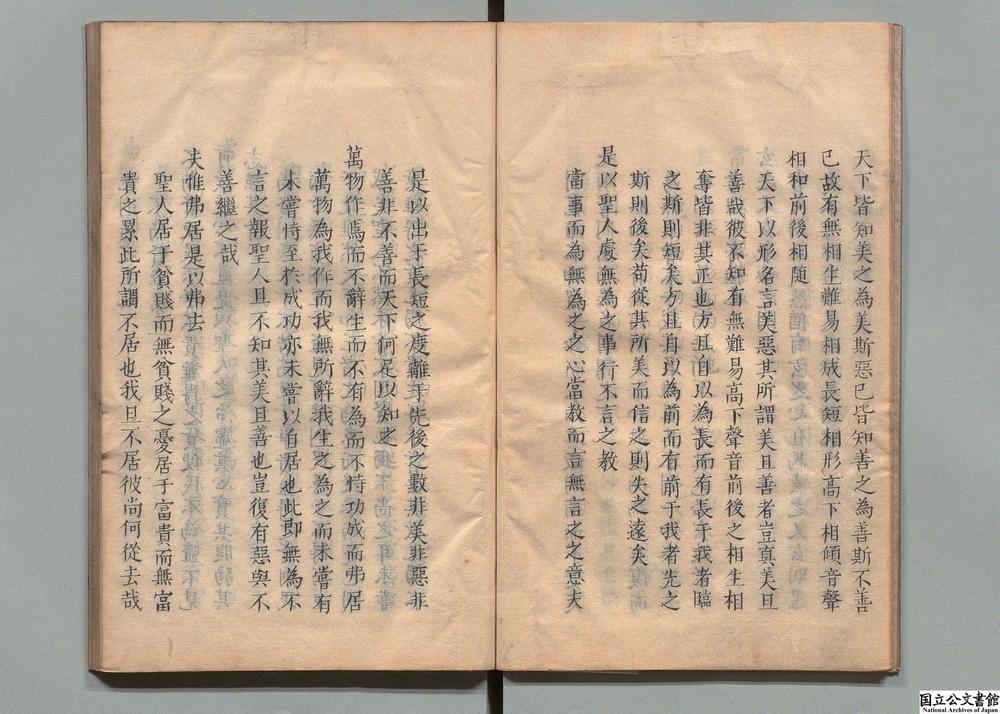 天下皆知美之為美斯惡已皆知善之為善斯不善
已故有無相生難易相成長短相形高下相傾音聲
相和前後相隨
天下以形名言美惡其所謂美且善者豈真美且
善哉彼不知有無難易高下聲音前後之相生相
奪皆非其正也方且自以為長而有長于我者臨
之斯則短矣方且自以為前而有前于我者先之
斯則後矣苟從其所美而信之則失之遠矣
是以聖人處無為之事行不言之教
當事而為無為之之心當教而言無言之之意夫
是以出乎長短之度離乎先後之數非美非惡非
善非不善而天下何足以知之
萬物作焉而不辭生而不有為而不恃功成而弗居
萬物為我作而我無所辭我生之為之而未嘗有
未嘗恃至於成功亦未嘗以自居也此即無為不
言之報聖人且不知其美且善也豈復有惡與不
善繼之哉
夫惟弗居是以弗去
聖人居于貧賤而無貧賤之憂居于富貴而無富
貴之累此所謂不居也我且不居彼尚何從去哉
国立公文書館
National Archives of Japan